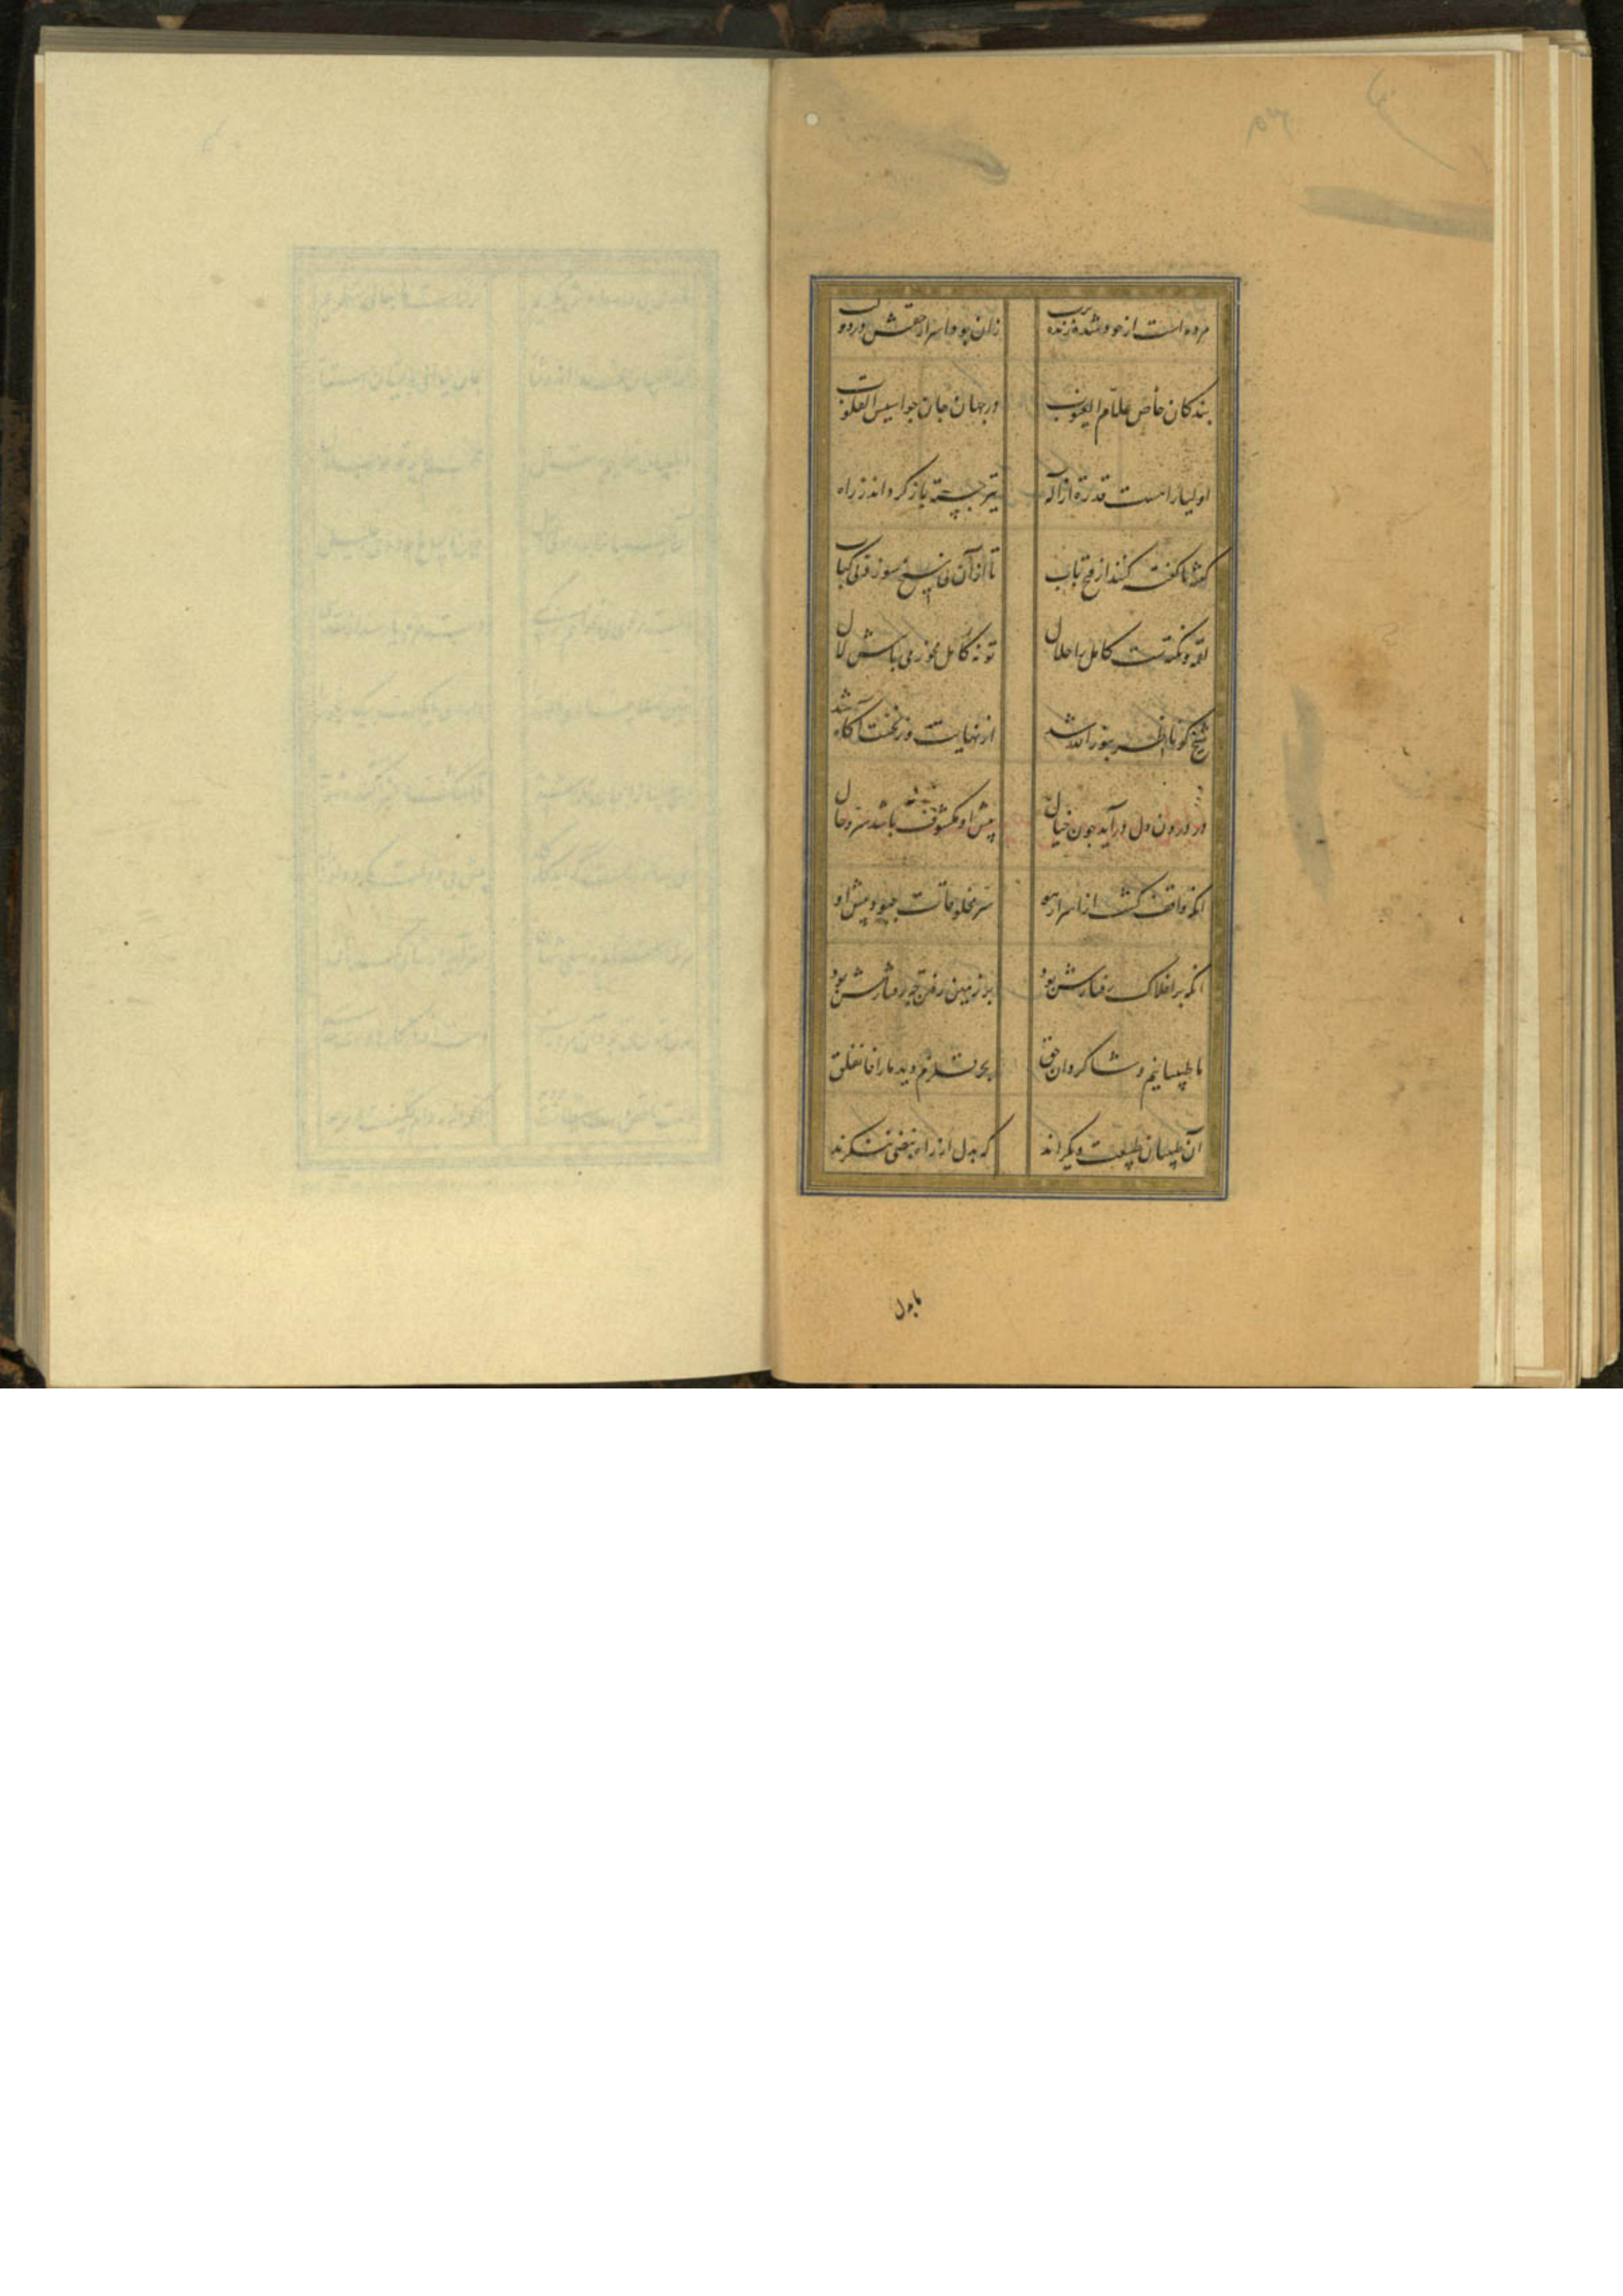 مرده است از خود شده زنده برب زان بود اسرار حقش در دو لب
بندکان خاص علام الغیوب در جهان جان جواسیس القلوب
اولیا را هست قدرة از اله تیر جسته باز کرداند ز راه
کفته ناکفته کند از فتح باب تا از آن نی سیخ سوزد نی کباب
لقمه و نکته ست کامل را حلال تو نه کامل مخور می باش لال
شیخ کو ینظر بنور الله شد از نهایت وز نخست آکاه شد
در درون دل در آید چون خیال پیش او مکشوف باشد سر حال
انکه واقف کشت از اسرار هو سر مخلوقات چبود پیش او
انکه بر افلاک رفتارش بود بر زمین رفتن چه رفتارش بود
ما طبیبانیم و شاکردان حق بحر قلزم دید ما را فانفلق
آن طبیبان طبیعت دیکراند که بدل از راه نبضی بنکرند
ما بدل